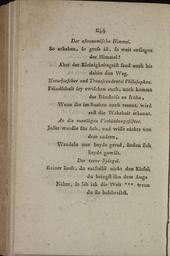 244
Der astronomische Himmel.
So erhaben, so gross ist, so weit entlegen
der Himmel!
Aber der Kleinigkeitsgeist fand auch bis
dahin den Weg.
Naturforscher und Transcendental-Philosophen.
Feindschaft sey zwischen euch, noch kommt
das Bündniss zu frühe,
Wenn ihr im Suchen euch trennt, wird
erst die Wahrheit erkannt.
An die voreiligen Verbindungsstifter.
Jeder wandle für sich, und wisse nichts von
dem andern,
Wandeln nur beyde gerad, finden sich
beyde gewiss.
Der treue Spiegel.
Reiner Bach, du entstellst nicht den Kiesel,
du bringst ihn dem Auge
Näher, so seh ich die Welt *** wenn
du sie beschreibst.